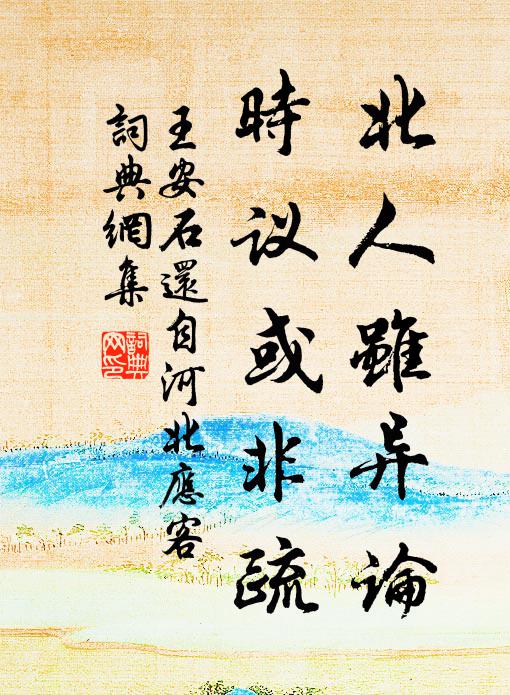 北人雖异論
時议或非疏
王安石還自河北應客
詞典網集
詞典
网印